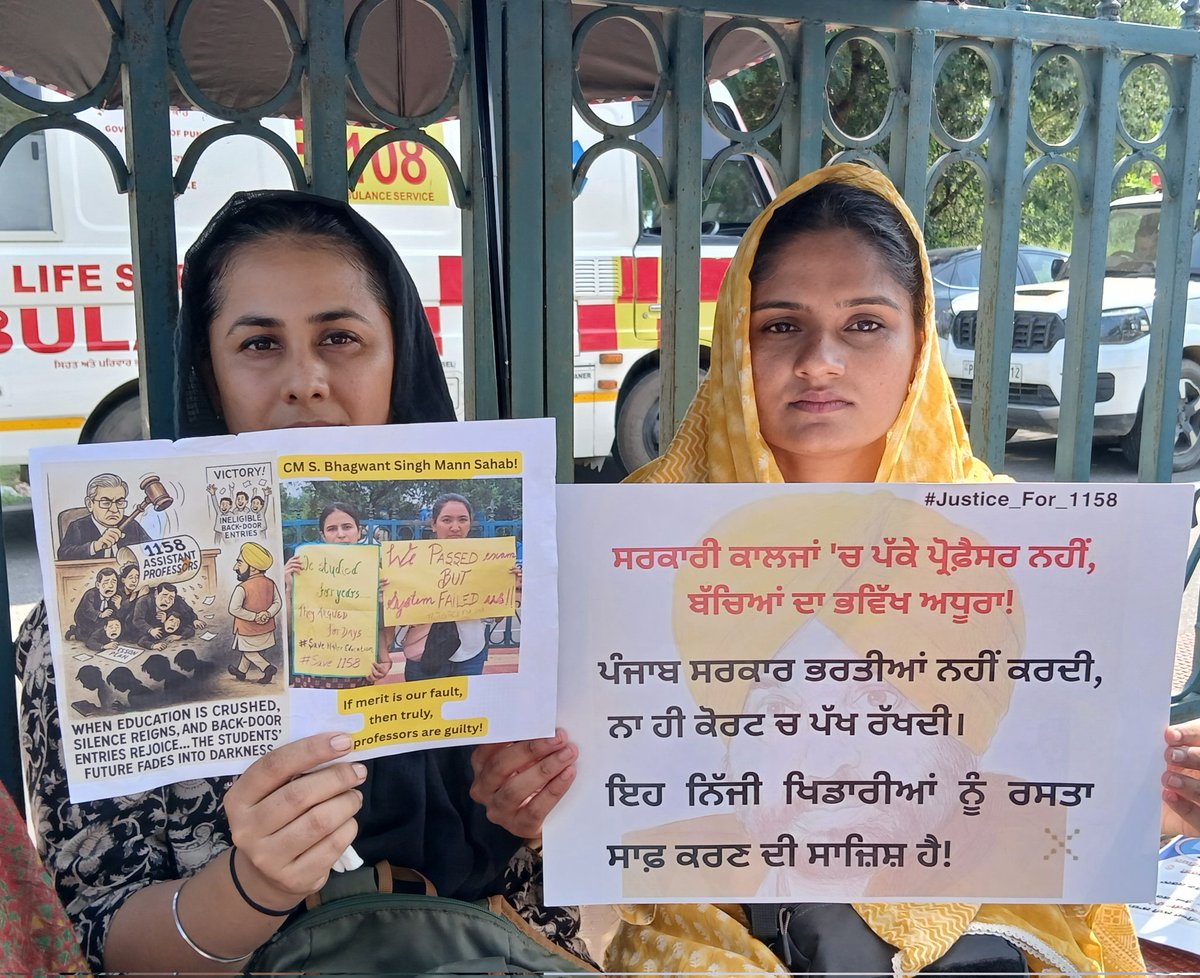 108
BULANCE SERVICE
LIFE S
BUL
ਸਿਹਤ ਅਤੇ ਪਰਿਵਾਰ
VICTORY!
INELIGIBLE
BACK-DOOR
ENTRIES
1158
ASSISTANT
PROFESSORS
LESSON
PLAN
WHEN EDUCATION IS CRUSHED,
SILENCE REIGNS, AND BACK-DOOR
ENTRIES REJOICE...THE STUDENTS'
FUTURE FADES INTO DARKNESS
CM S. Bhagwant Singh Mann Sahab!
studied
for years
They ARGUED
for DAYS
#Save 1158
We PASSED exam
BUT
System FAILED us!!
If merit is our fault,
then truly,
professors are guilty!
#Justice_For_1158
ਸਰਕਾਰੀ ਕਾਲਜਾਂ 'ਚ ਪੱਕੇ ਪ੍ਰੋਫ਼ੈਸਰ ਨਹੀਂ,
ਬੱਚਿਆਂ ਦਾ ਭਵਿੱਖ ਅਧੂਰਾ!
ਪੰਜਾਬ ਸਰਕਾਰ ਭਰਤੀਆਂ ਨਹੀਂ ਕਰਦੀ,
ਨਾ ਹੀ ਕੋਰਟ ਚ ਪੱਖ ਰੱਖਦੀ।
ਇਹ ਨਿੱਜੀ ਖਿਡਾਰੀਆਂ ਨੂੰ ਰਸਤਾ
ਸਾਫ਼ ਕਰਣ ਦੀ ਸਾਜ਼ਿਸ਼ ਹੈ!